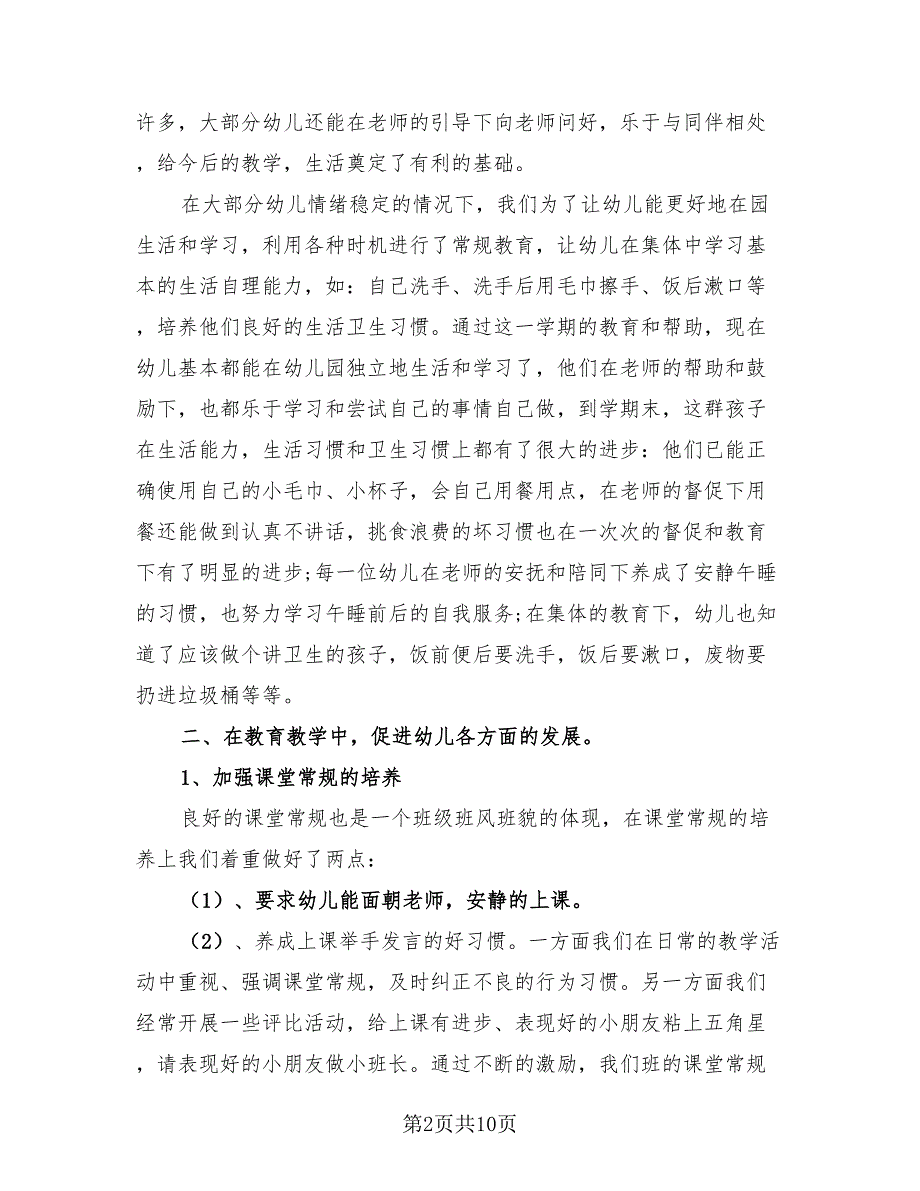 许多，大部分幼儿还能在老师的引导下向老师问好，乐于与同伴相处
，给今后的教学，生活奠定了有利的基础。
在大部分幼儿情绪稳定的情况下，我们为了让幼儿能更好地在园
生活和学习，利用各种时机进行了常规教育，让幼儿在集体中学习基
本的生活自理能力，如：自己洗手、洗手后用毛巾擦手、饭后漱口等
，培养他们良好的生活卫生习惯。通过这一学期的教育和帮助，现在
幼儿基本都能在幼儿园独立地生活和学习了，他们在老师的帮助和鼓
励下，也都乐于学习和尝试自己的事情自己做，到学期末，这群孩子
在生活能力，生活习惯和卫生习惯上都有了很大的进步：他们已能正
确使用自己的小毛巾、小杯子，会自己用餐用点，在老师的督促下用
餐还能做到认真不讲话，挑食浪费的坏习惯也在一次次的督促和教育
下有了明显的进步;每一位幼儿在老师的安抚和陪同下养成了安静午睡
的习惯，也努力学习午睡前后的自我服务;在集体的教育下，幼儿也知
道了应该做个讲卫生的孩子，饭前便后要洗手，饭后要漱口，废物要
扔进垃圾桶等等。
二、在教育教学中，促进幼儿各方面的发展。
1、加强课堂常规的培养
良好的课堂常规也是一个班级班风班貌的体现，在课堂常规的培
养上我们着重做好了两点：
（1）、要求幼儿能面朝老师，安静的上课。
（2）、养成上课举手发言的好习惯。一方面我们在日常的教学活
动中重视、强调课堂常规，及时纠正不良的行为习惯。另一方面我们
经常开展一些评比活动，给上课有进步、表现好的小朋友粘上五角星
，请表现好的小朋友做小班长。通过不断的激励，我们班的课堂常规
第2页共10页